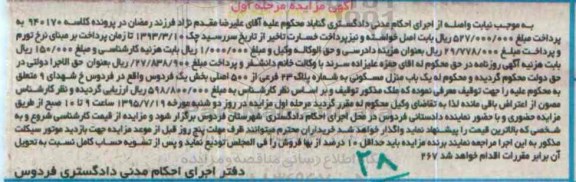 آگهی مزایده مرحله اول
به موجب نیابت واصله از اجرای احکام مدنی دادگستری گناباد محکوم علیه آقای علیرضا مقدم نژاد فرزند رمضان در پرونده کلاسه ۹۴۰۱۷۰ به
پرداخت مبلغ ۵۲۷/۰۰۰/۰۰۰ ریال بابت اصل خواسته و نیز پرداخت خسارت تاخیر از تاریخ سررسید چک ۱۳۹۳/۳/۱۰ تا زمان پرداخت بر مبنای نرخ تورم
و پرداخت مبلغ ۲۹/۷۷۸/۰۰۰ ریال بعنوان هزینه دادرسی و حق الوکاله وکیل و مبلغ ۱/۰۰۰/۰۰۰ ریال بابت هزینه کارشناسی و مبلغ ۱۵۰/۰۰۰ ریال
بابت هزینه آگهی روزنامه در حق محکوم له آقای حمزه علیزاده سرند با وکالت خانم دانشفر و پرداخت مبلغ ۲۷/۸۳۸/۹۰۰ ریال بعنوان حق الاجرا دولتی در
حق دولت محکوم گردیده و محکوم له یک باب منزل مسکونی به شماره پلاک ۲۳ فرعی از ۵۰۰ اصلی بخش یک فردوس واقع در فردوس خ شهدای ۹ متعلق
به محکوم علیه را جهت توقیف معرفی نموده که ملک مذکور توقیف و بر اساس نظر کارشناس به مبلغ ۵۹۸/۸۰۰/۰۰۰ ریال ارزیابی گردیده و نظر کارشناس
مصون از اعتراض باقی مانده لذا به تقاضای وکیل محکوم له مقرر گردید مرحله اول مزایده در روز دو شنبه مورخه ۱۳۹۵/۷/۱۹ ساعت ۹ تا ۱۰ صبح از طریق
مزایده حضوری و با حضور نماینده دادستانی فردوس در محل اجرای احکام دادگستری شهرستان فردوس برگزار شود و مزایده از قیمت کارشناسی شروع و به
شخصی که بالاترین قیمت را پیشنهاد نماید واگذار خواهد شد خریداران محترم میتوانند ظرف مهلت پنج روز قبل از موعد مزایده جهت بازدید موتور سیکلت
مذکور به این اجرا مراجعه نمایند برنده مزایده باید حداقل ۱۰ درصد از بها فروش را فی المجلس تودیع نماید و پس از تسویه حساب کامل نسبت به تحویل
آن برابر مقررات اقدام خواهد شد ۲۶۷
۲۸
دفتر اجرای احکام مدنی دادگستری فردوس